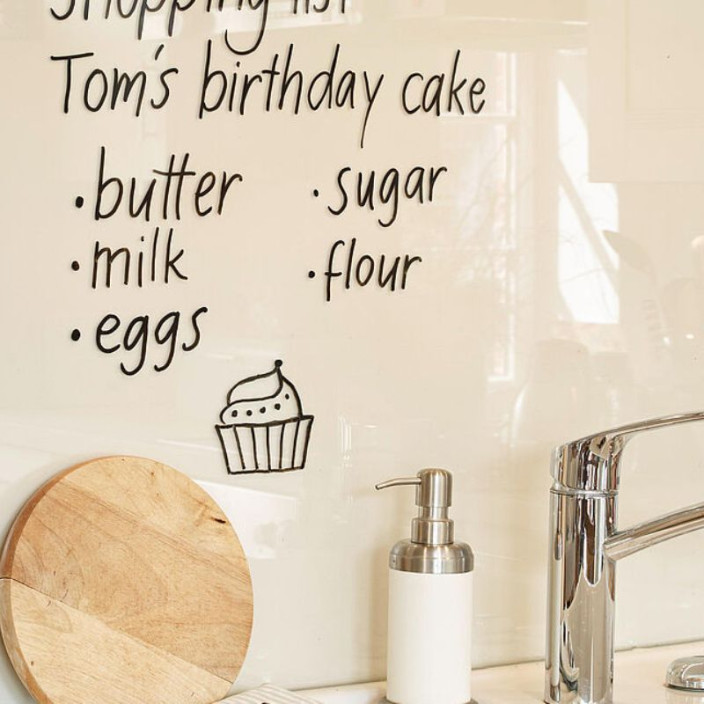 Shopping list
Tom's birthday cake
·butter
·milk
·eggs
·sugar
·flour